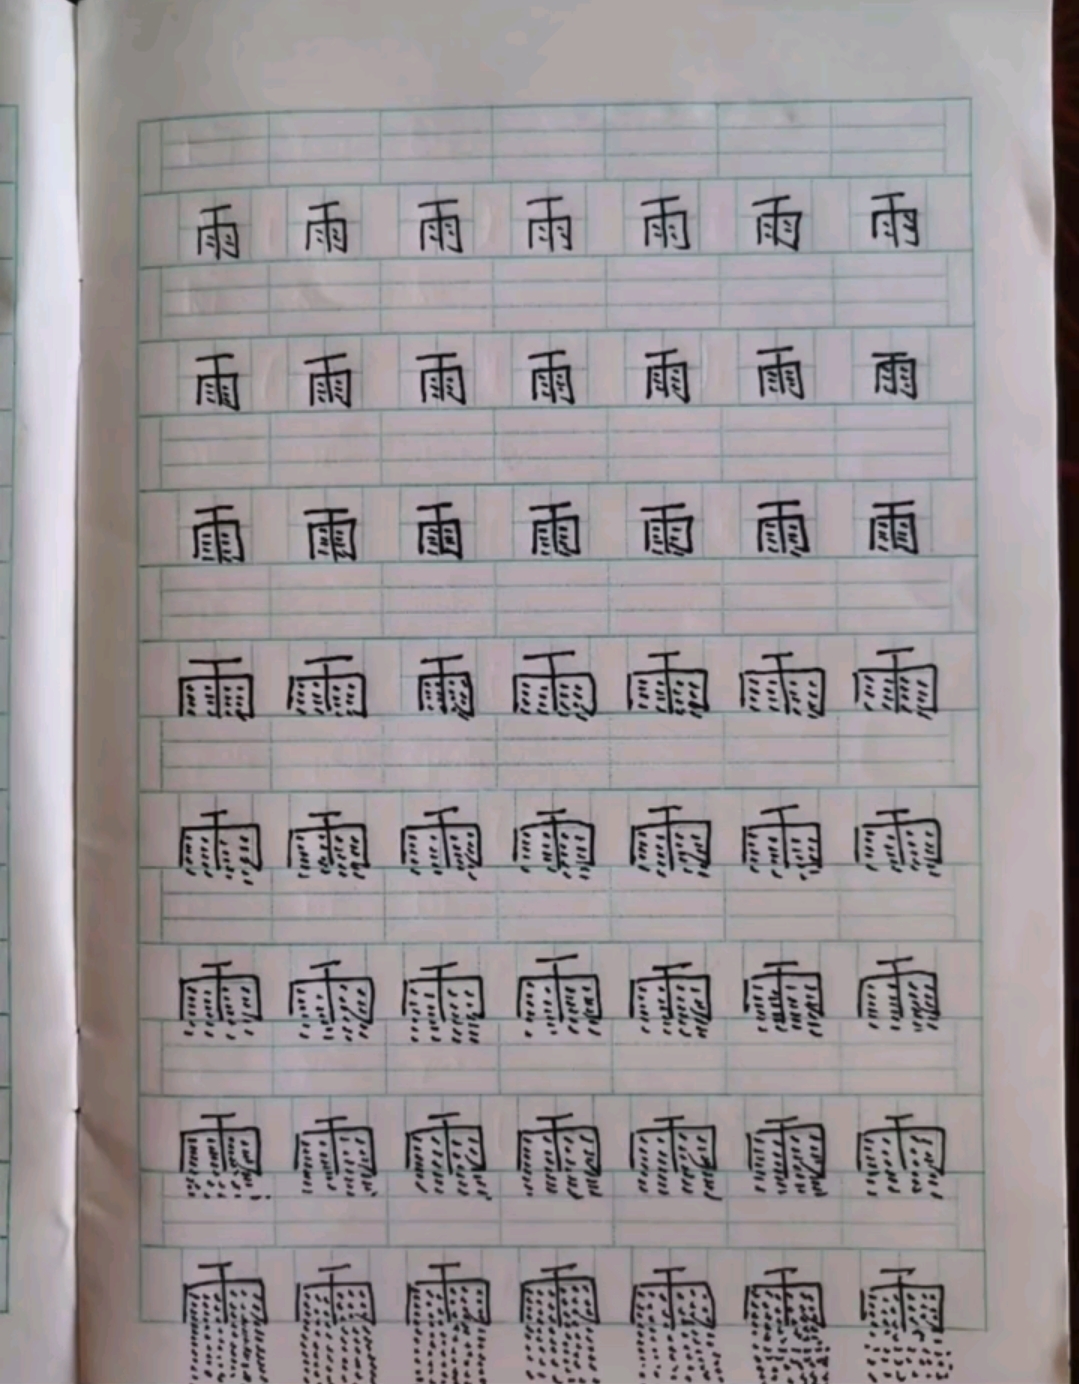 雨 雨 雨 雨 雨 雨 雨
雨 雨 雨 雨 雨 雨 雨
雨 雨 雨 雨 雨 雨 雨
雨 雨 雨 雨 雨 雨 雨
雨 雨 雨 雨 雨 雨 雨
雨 雨 雨 雨 雨 雨 雨
雨 雨 雨 雨 雨 雨 雨
雨 雨 雨 雨 雨 雨 雨